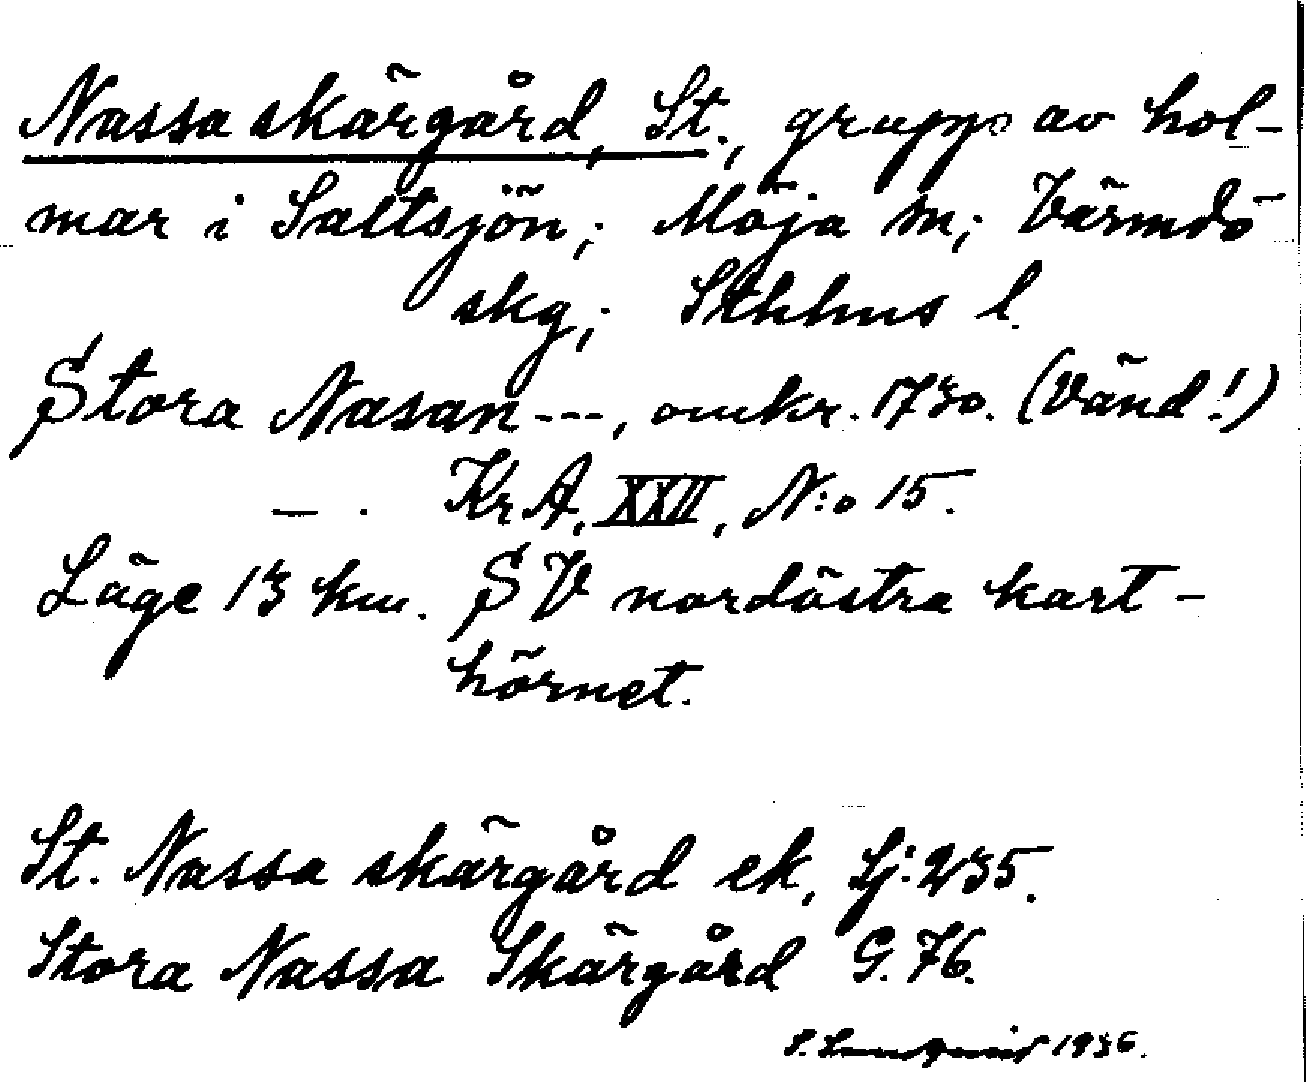 Nassa skärgård, St., grupp av hol-
mar i Saltsjön; Möja sn; Värmdö
skg; Sthlms l.
Stora Nasan---, omkr. 1730. (Vänd!)
— . KrA, XXII, N:o 15.
Läge 13 km. SV nordöstra kart-
hörnet.
St. Nassa skärgård ek, Sj: 235.
Stora Nassa Skärgård G. 76.
S. Lundqvist 1936.